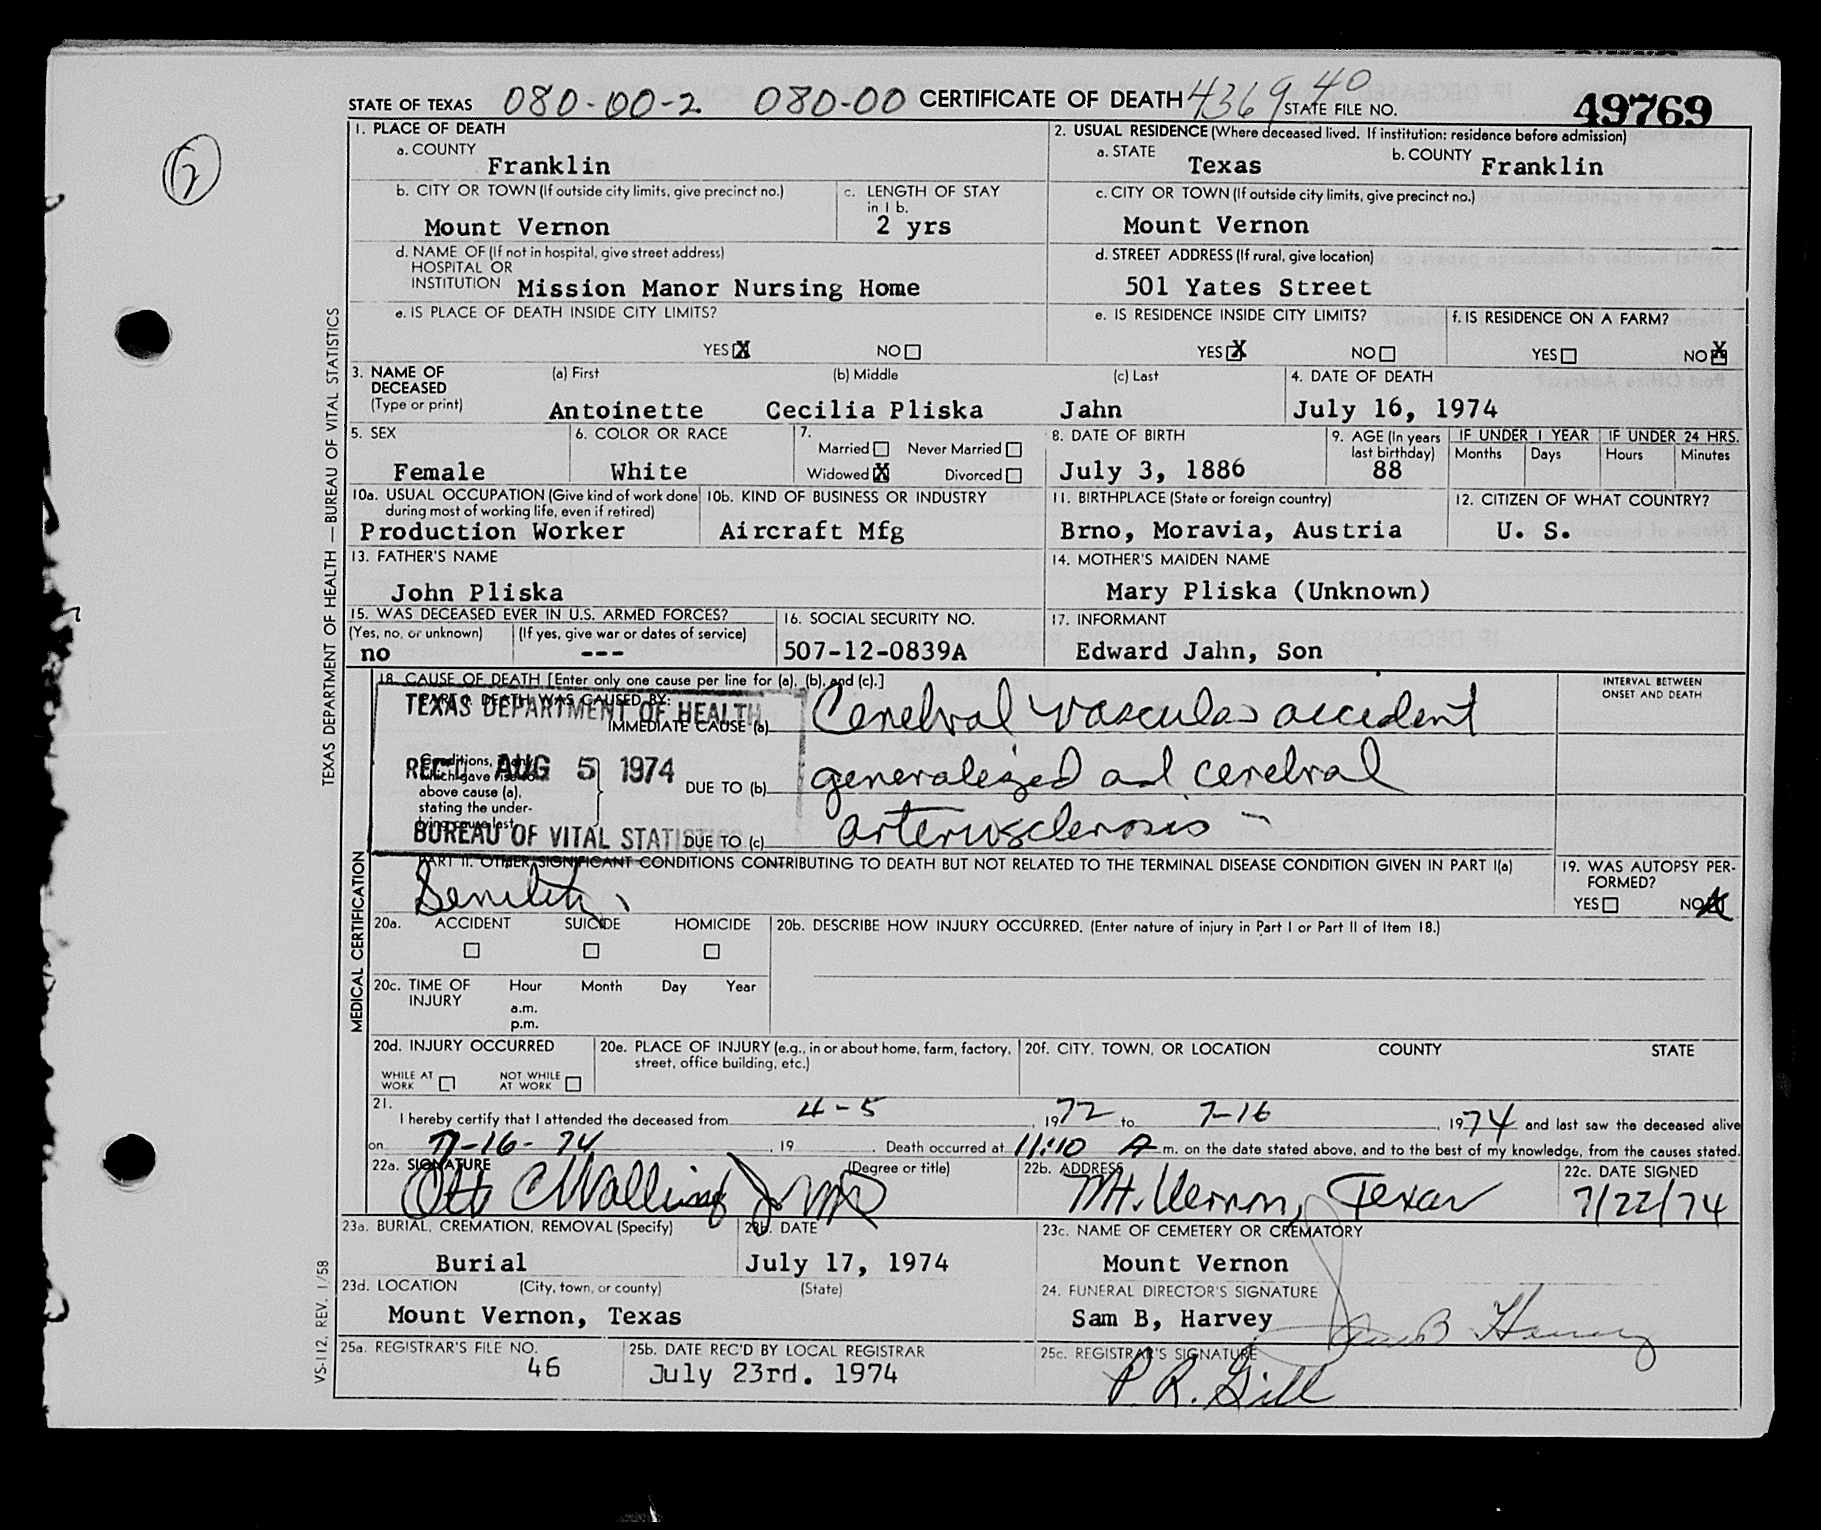 STATE OF TEXAS 080-00-2 080-00 CERTIFICATE OF DEATH 4369 40 STATE FILE NO. 49769
1. PLACE OF DEATH
a. COUNTY Franklin
2. USUAL RESIDENCE (Where deceased lived. If institution: residence before admission)
a. STATE Texas b. COUNTY Franklin
b. CITY OR TOWN (If outside city limits, give precinct no.) Mount Vernon
c. LENGTH OF STAY in 1 b. 2 yrs
c. CITY OR TOWN (If outside city limits, give precinct no.) Mount Vernon
d. NAME OF (If not in hospital, give street address)
HOSPITAL OR
INSTITUTION Mission Manor Nursing Home
d. STREET ADDRESS (If rural, give location)
501 Yates Street
e. IS PLACE OF DEATH INSIDE CITY LIMITS?
YES X NO
e. IS RESIDENCE INSIDE CITY LIMITS?
YES X NO
f. IS RESIDENCE ON A FARM?
YES NO X
3. NAME OF DECEASED (Type or print)
(a) First (b) Middle (c) Last
Antoinette Cecilia Pliska Jahn
4. DATE OF DEATH
July 16, 1974
5. SEX
Female
6. COLOR OR RACE
White
7. Married Never Married
Widowed X Divorced
8. DATE OF BIRTH
July 3, 1886
9. AGE (In years last birthday)
88
IF UNDER 1 YEAR IF UNDER 24 HRS.
Months Days Hours Minutes
10a. USUAL OCCUPATION (Give kind of work done during most of working life, even if retired)
Production Worker
10b. KIND OF BUSINESS OR INDUSTRY
Aircraft Mfg
11. BIRTHPLACE (State or foreign country)
Brno, Moravia, Austria
12. CITIZEN OF WHAT COUNTRY?
U. S.
13. FATHER'S NAME
John Pliska
14. MOTHER'S MAIDEN NAME
Mary Pliska (Unknown)
15. WAS DECEASED EVER IN U.S. ARMED FORCES?
(Yes, no, or unknown) (If yes, give war or dates of service)
no ---
16. SOCIAL SECURITY NO.
507-12-0839A
17. INFORMANT
Edward Jahn, Son
18. CAUSE OF DEATH [Enter only one cause per line for (a), (b), and (c).]
PART I. DEATH WAS CAUSED BY:
IMMEDIATE CAUSE (a) Cerebral vascular accident
INTERVAL BETWEEN ONSET AND DEATH
TEXAS DEPARTMENT OF HEALTH
REC'D AUG 5 1974
BUREAU OF VITAL STATISTICS
Conditions, if any, which gave rise to above cause (a), stating the underlying cause last.
DUE TO (b) generalized and cerebral
DUE TO (c) arteriosclerosis -
PART II. OTHER SIGNIFICANT CONDITIONS CONTRIBUTING TO DEATH BUT NOT RELATED TO THE TERMINAL DISEASE CONDITION GIVEN IN PART I(a)
Senility
19. WAS AUTOPSY PERFORMED?
YES NO X
20a. ACCIDENT SUICIDE HOMICIDE
20b. DESCRIBE HOW INJURY OCCURRED. (Enter nature of injury in Part I or Part II of Item 18.)
20c. TIME OF INJURY Hour Month Day Year
a.m.
p.m.
20d. INJURY OCCURRED
WHILE AT WORK NOT WHILE AT WORK
20e. PLACE OF INJURY (e.g., in or about home, farm, factory, street, office building, etc.)
20f. CITY, TOWN, OR LOCATION COUNTY STATE
21.
I hereby certify that I attended the deceased from 4-5, 1972 to 7-16, 1974 and last saw the deceased alive
on 7-16-74, 19 . Death occurred at 11:10 A m. on the date stated above, and to the best of my knowledge, from the causes stated.
22a. SIGNATURE (Degree or title)
22b. ADDRESS
Mt. Vernon, Texas
22c. DATE SIGNED
7/22/74
23a. BURIAL, CREMATION, REMOVAL (Specify)
Burial
23b. DATE
July 17, 1974
23c. NAME OF CEMETERY OR CREMATORY
Mount Vernon
23d. LOCATION (City, town, or county) (State)
Mount Vernon, Texas
24. FUNERAL DIRECTOR'S SIGNATURE
Sam B, Harvey Sam B Harvey
25a. REGISTRAR'S FILE NO.
46
25b. DATE REC'D BY LOCAL REGISTRAR
July 23rd. 1974
25c. REGISTRAR'S SIGNATURE
P. R. Gill
TEXAS DEPARTMENT OF HEALTH — BUREAU OF VITAL STATISTICS
MEDICAL CERTIFICATION
VS-112, REV. 1/58